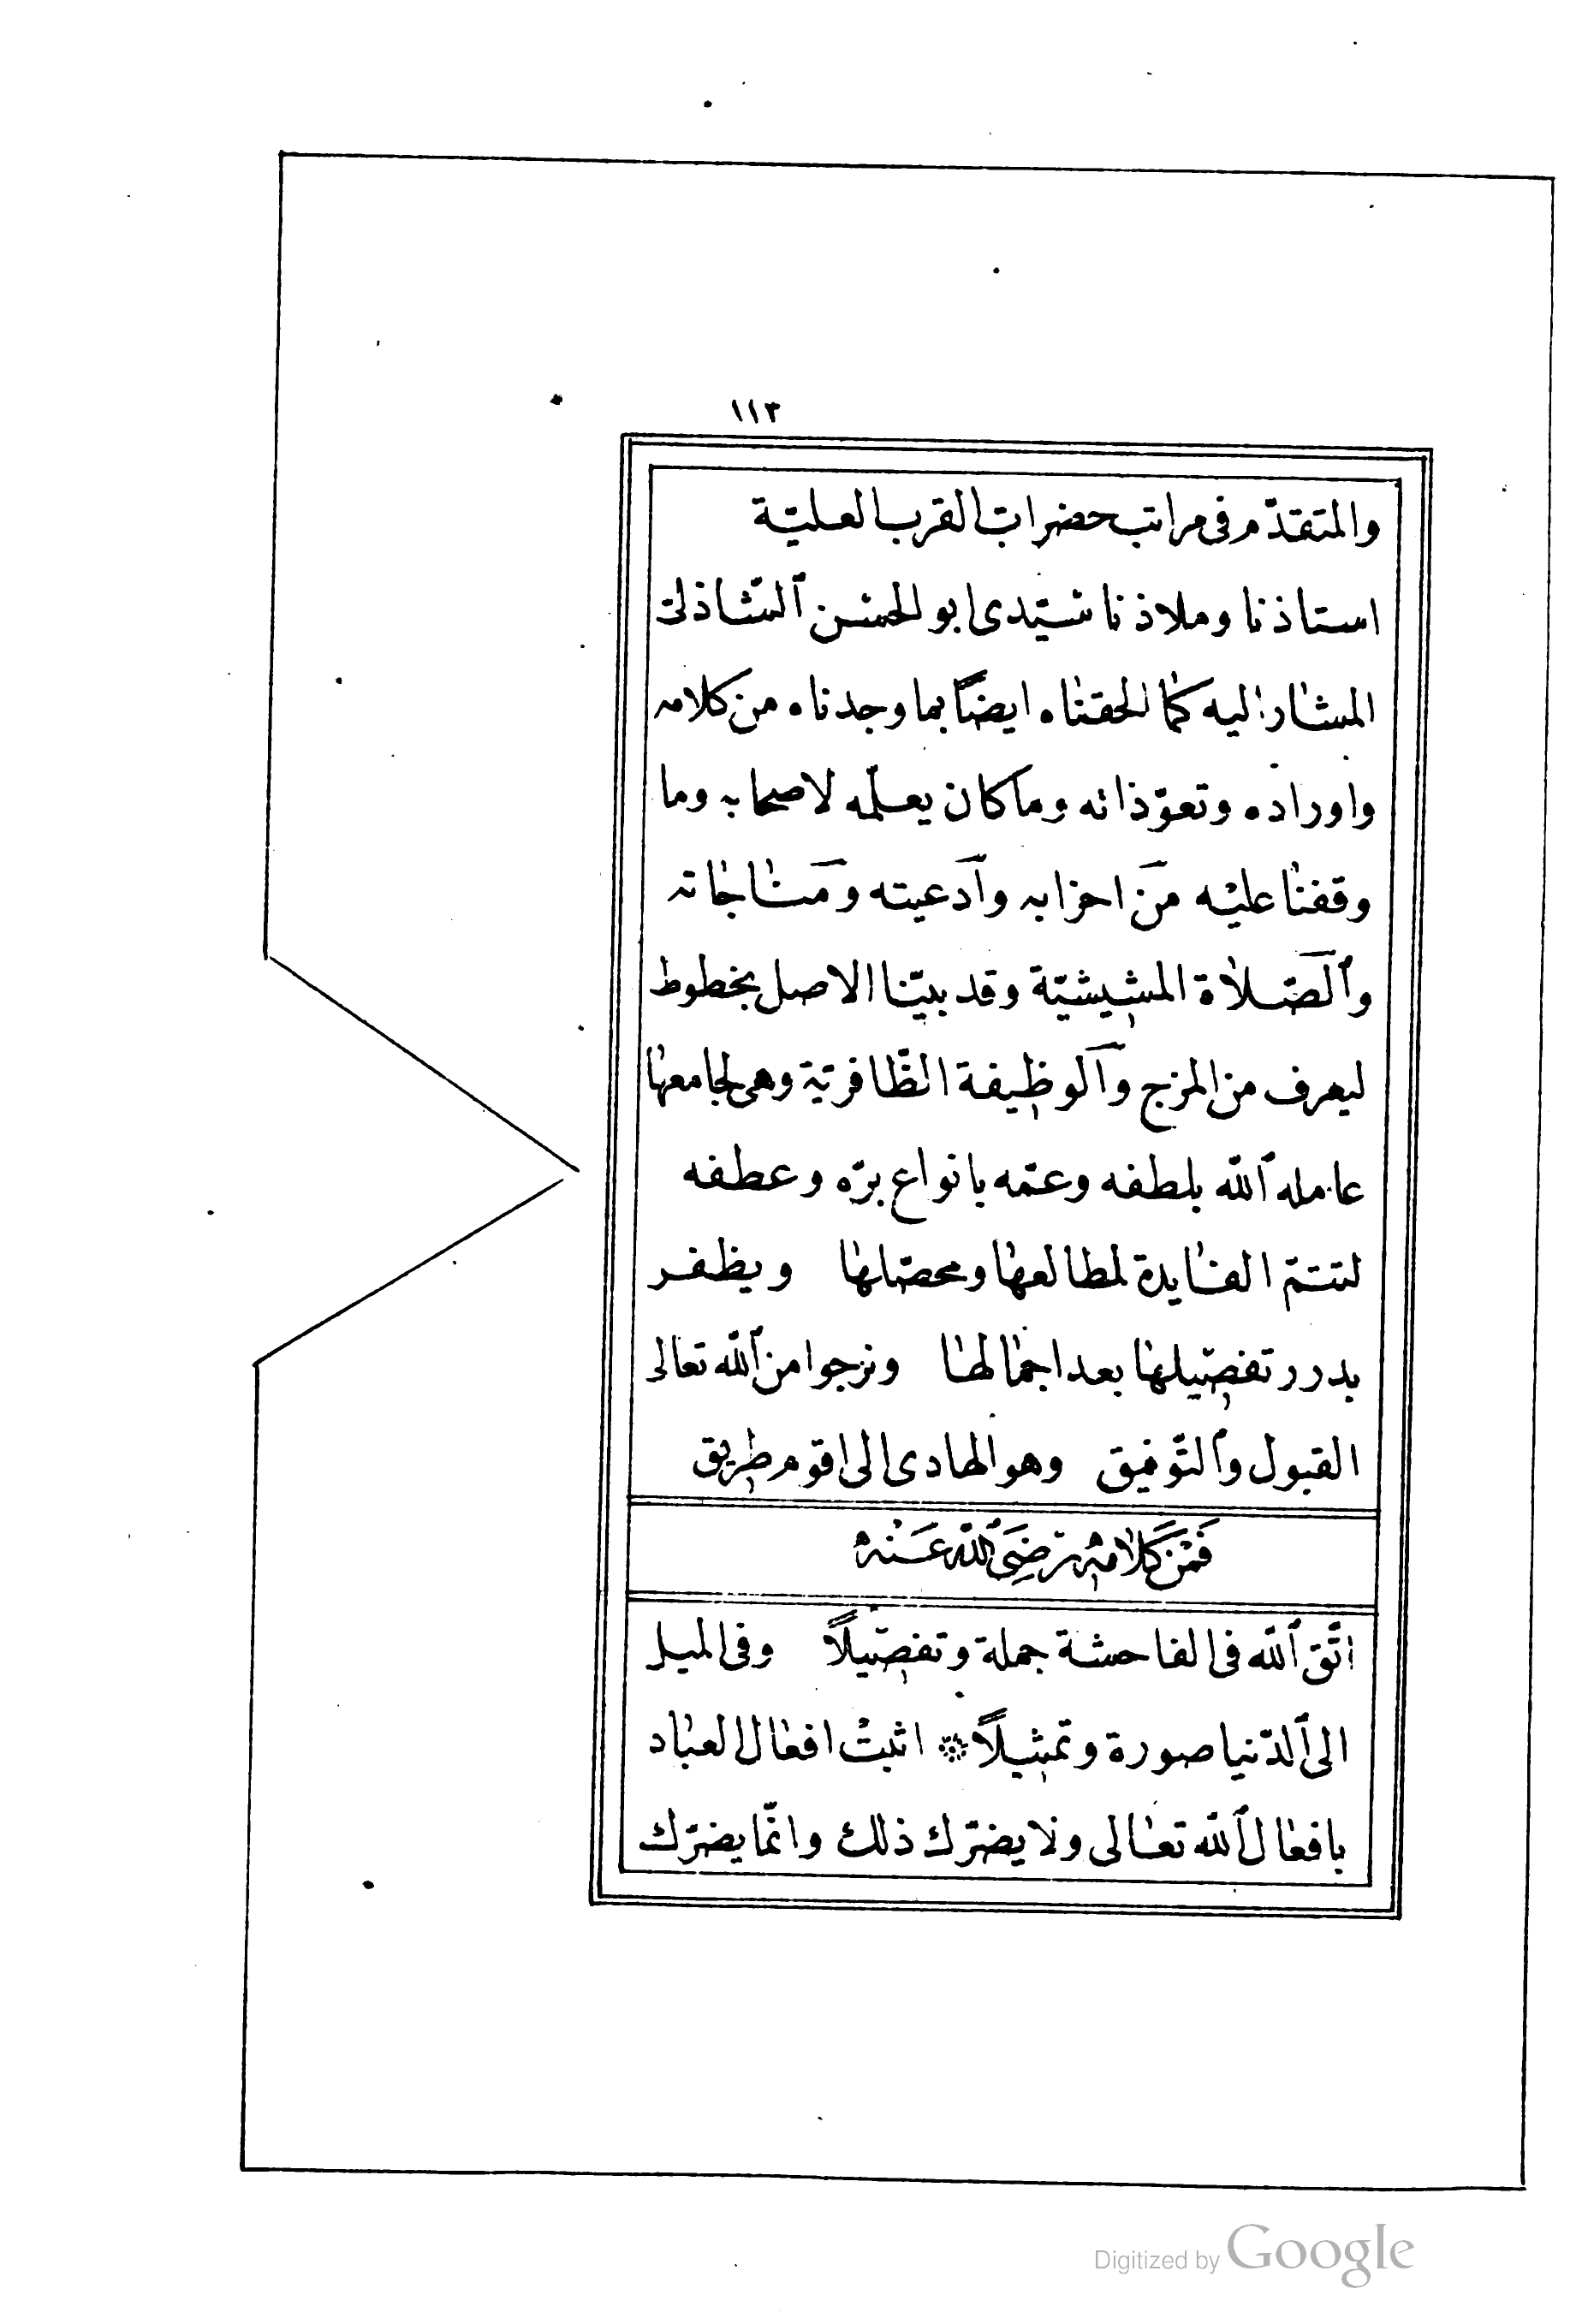 ١١٣
والمتقدّم فى مراتب حضرات القرب العليّة
استاذنا وملاذنا سيّدى ابو الحسن الشّاذلى
المشار اليه كما الحقناه ايضاً بما وجدناه من كلامه
واوراده وتعوّذاته وما كان يعلّمه لاصحابه وما
وقفنا عليه من احزابه وادعيته ومناجاته
والصّلاة المشيشيّة وقد بيّنا الاصل بخطوط
ليعرف من المزج والوظيفة الظّافريّة وهى لجامعها
عامله الله بلطفه وعمّه بانواع برّه وعطفه
لتتمّ الفايدة لمطالعها ومحصّلها ويظفر
بدرر تفصيلها بعد اجمالها ونرجوا من الله تعالى
القبول والتّوفيق وهو الهادى الى اقوم طريق
فَمِنْ كَلَامِهِ رَضِىَ اللهُ عَنْهُ
اتّق الله فى الفاحشة جملة وتفصيلاً وفى الميل
الى الدّنيا صورة وتمثيلاً ۞ اثبت افعال العباد
بافعال الله تعالى ولا يضرّك ذلك وانّما يضرّك
Digitized by Google